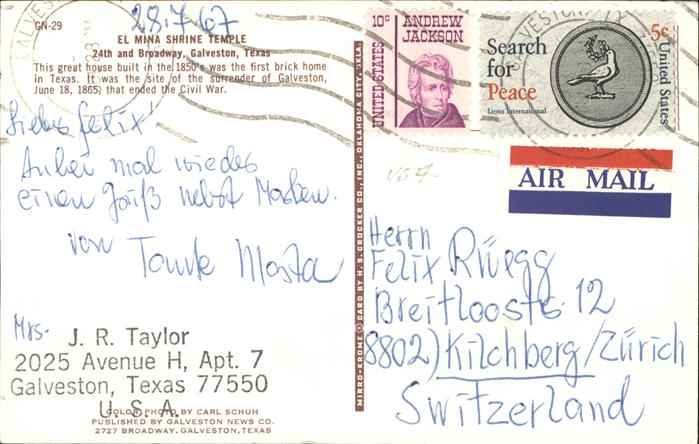 GN-29
28.7.67
EL MINA SHRINE TEMPLE
24th and Broadway, Galveston, Texas
This great house built in the 1850's was the first brick home
in Texas. It was the site of the surrender of Galveston,
June 18, 1865, that ended the Civil War.
Liebes Felix!
Anbei mal wieder
einen Gruß nebst Marken.
von Tante Marta
Mrs.
J. R. Taylor
2025 Avenue H, Apt. 7
Galveston, Texas 77550
U. S. A.
COLOR PHOTO BY CARL SCHUH
PUBLISHED BY GALVESTON NEWS CO.
2727 BROADWAY, GALVESTON, TEXAS
MIRRO-KROME ® CARD BY H. S. CROCKER CO., INC., OKLAHOMA CITY, OKLA.
10c ANDREW
JACKSON
UNITED STATES
Search
for
Peace
Lions International
5c
United States
AIR MAIL
Herrn
Felix Rüegg
Breitloostr. 12
8802) Kilchberg/Zürich
Switzerland